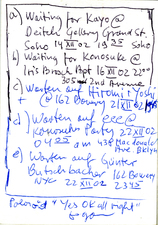 a) Waiting for Kayo @
Deitch Gallery Grand St.
Soho 14 XII 02 19 25 Soho
b) Waiting for Konosuke @
Iris Brosch Apt 16 XII 02 22
305 2nd Avenue
c) Warten auf Hiromi + Yoshi
+ @ 162 Bowery 21 XII 02
d) Warten auf @
Konosuke Party 22 XII 02
04 am 438 Mac Donald
Ave Bklyn
e) Warten auf Günter
Butschbacher 162 Bowery
NYC 22 XII 02 23 45
Polaroid "Yes OK all right"